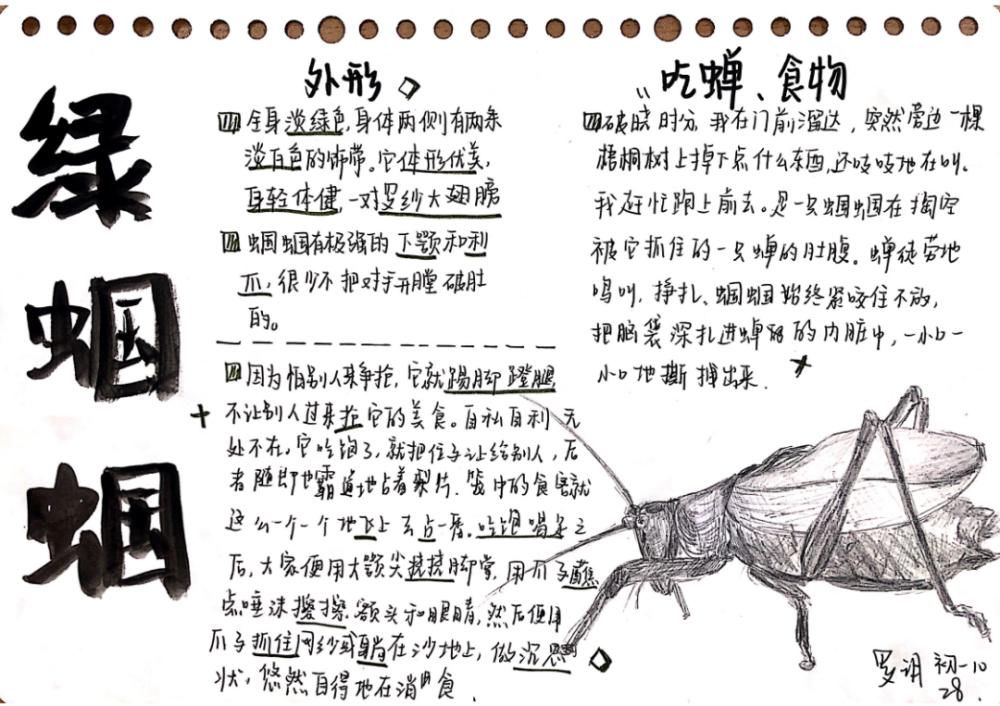 绿
蝈
蝈
外形
全身淡绿色,身体两侧有两条
淡白色的饰带。它体形优美,
身轻体健,一对罗纱大翅膀
蝈蝈有极强的下颚和利
爪,很少不把对手开膛破肚
的。
因为怕别人来争抢,它就踢脚蹬腿
不让别人过来抢它的美食。自私自利无
处不在。它吃饱了,就把位子让给别人,后
者随即也霸道地占着梨片。笼中的食客就
这么一个一个地飞上去占一番。吃饱喝足之
后,大家便用大颚尖挠挠脚掌,用爪子蘸
点唾沫擦擦额头和眼睛,然后便用
爪子抓住网纱或躺在沙地上,做沉思
状,悠然自得地在消食.
吃蝉、食物
破晓时分,我在门前溜达,突然旁边一棵
梧桐树上掉下点什么东西,还吱吱地在叫。
我赶忙跑上前去。是一只蝈蝈在掏空
被它抓住的一只蝉的肚腹。蝉徒劳地
鸣叫,挣扎、蝈蝈始终紧咬住不放,
把脑袋深扎进蝉的内脏中,一小口一
小口地撕拽出来.
罗玥 初一10
28.